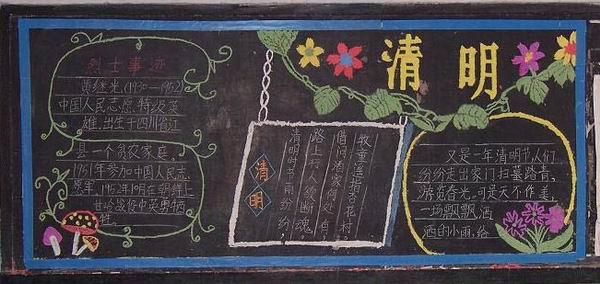 烈士事迹
黄继光(1930—1952)
中国人民志愿特级英
雄,出生于四川省江
县一个贫农家庭,
1951年参加中国人民志
愿军,1952年10月在朝鲜上
甘岭战役中英勇牺
牲。
清明
清明时节雨纷纷,
路上行人欲断魂。
借问酒家何处有,
牧童遥指杏花村。
清明
又是一年清明节,人们
纷纷走出家门扫墓踏青,
游览春光。可是天不作美,
一场飘飘洒
洒的小雨,给